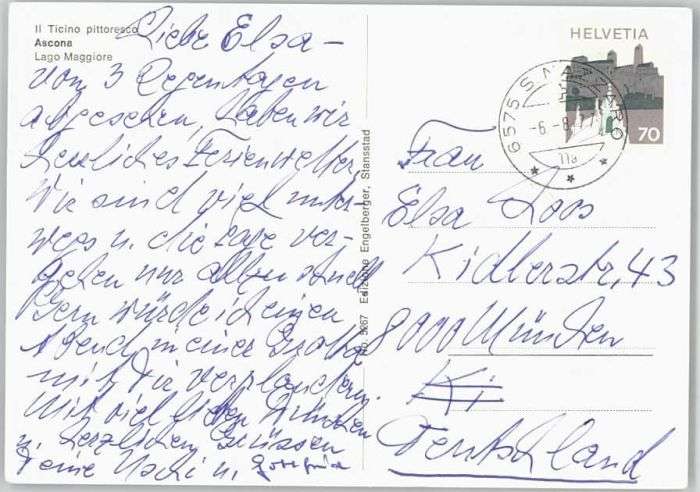 Il Ticino pittoresco
Ascona
Lago Maggiore
Liebe Elsa –
von 3 Regentagen
abgesehen, haben wir
herrliches Ferienwetter
Wir sind viel unter-
wegs u. die Tage ver-
gehen nur allzu schnell
Gern würde ich einen
Abend in einer
mit Dir verplaudern.
Mit viel lieben
u. herzlichen Grüssen
Deine Uschi u.
No. 9267 Edizione Engelberger, Stansstad
HELVETIA
70
6575 S. NAZZARO
-6.-8.
11a
Frau
Elsa Loos
Kidlerstr, 43
8000 München
Ki
Deutschland